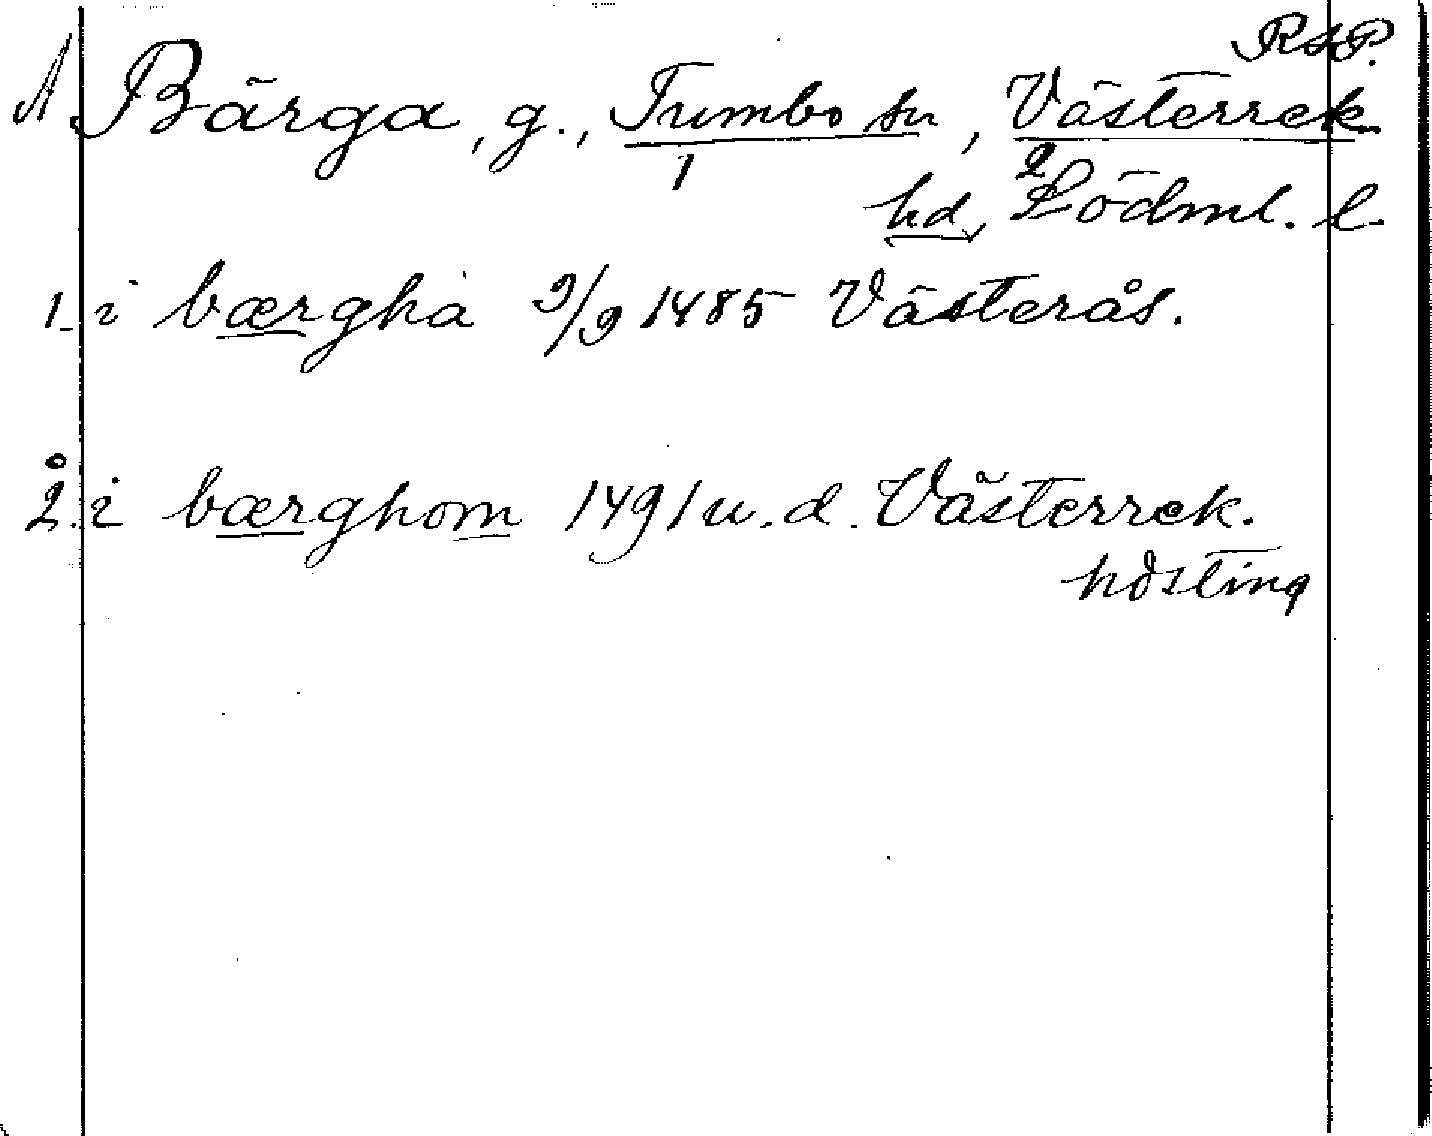 RAP.
A Bärga, g., Tumbo sn, Västerrek
1 2
hd, Södml. l.
1. i bærgha 9/9 1485 Västerås.
2. i bærghom 1491 u. d. Västerrek.
hdsting